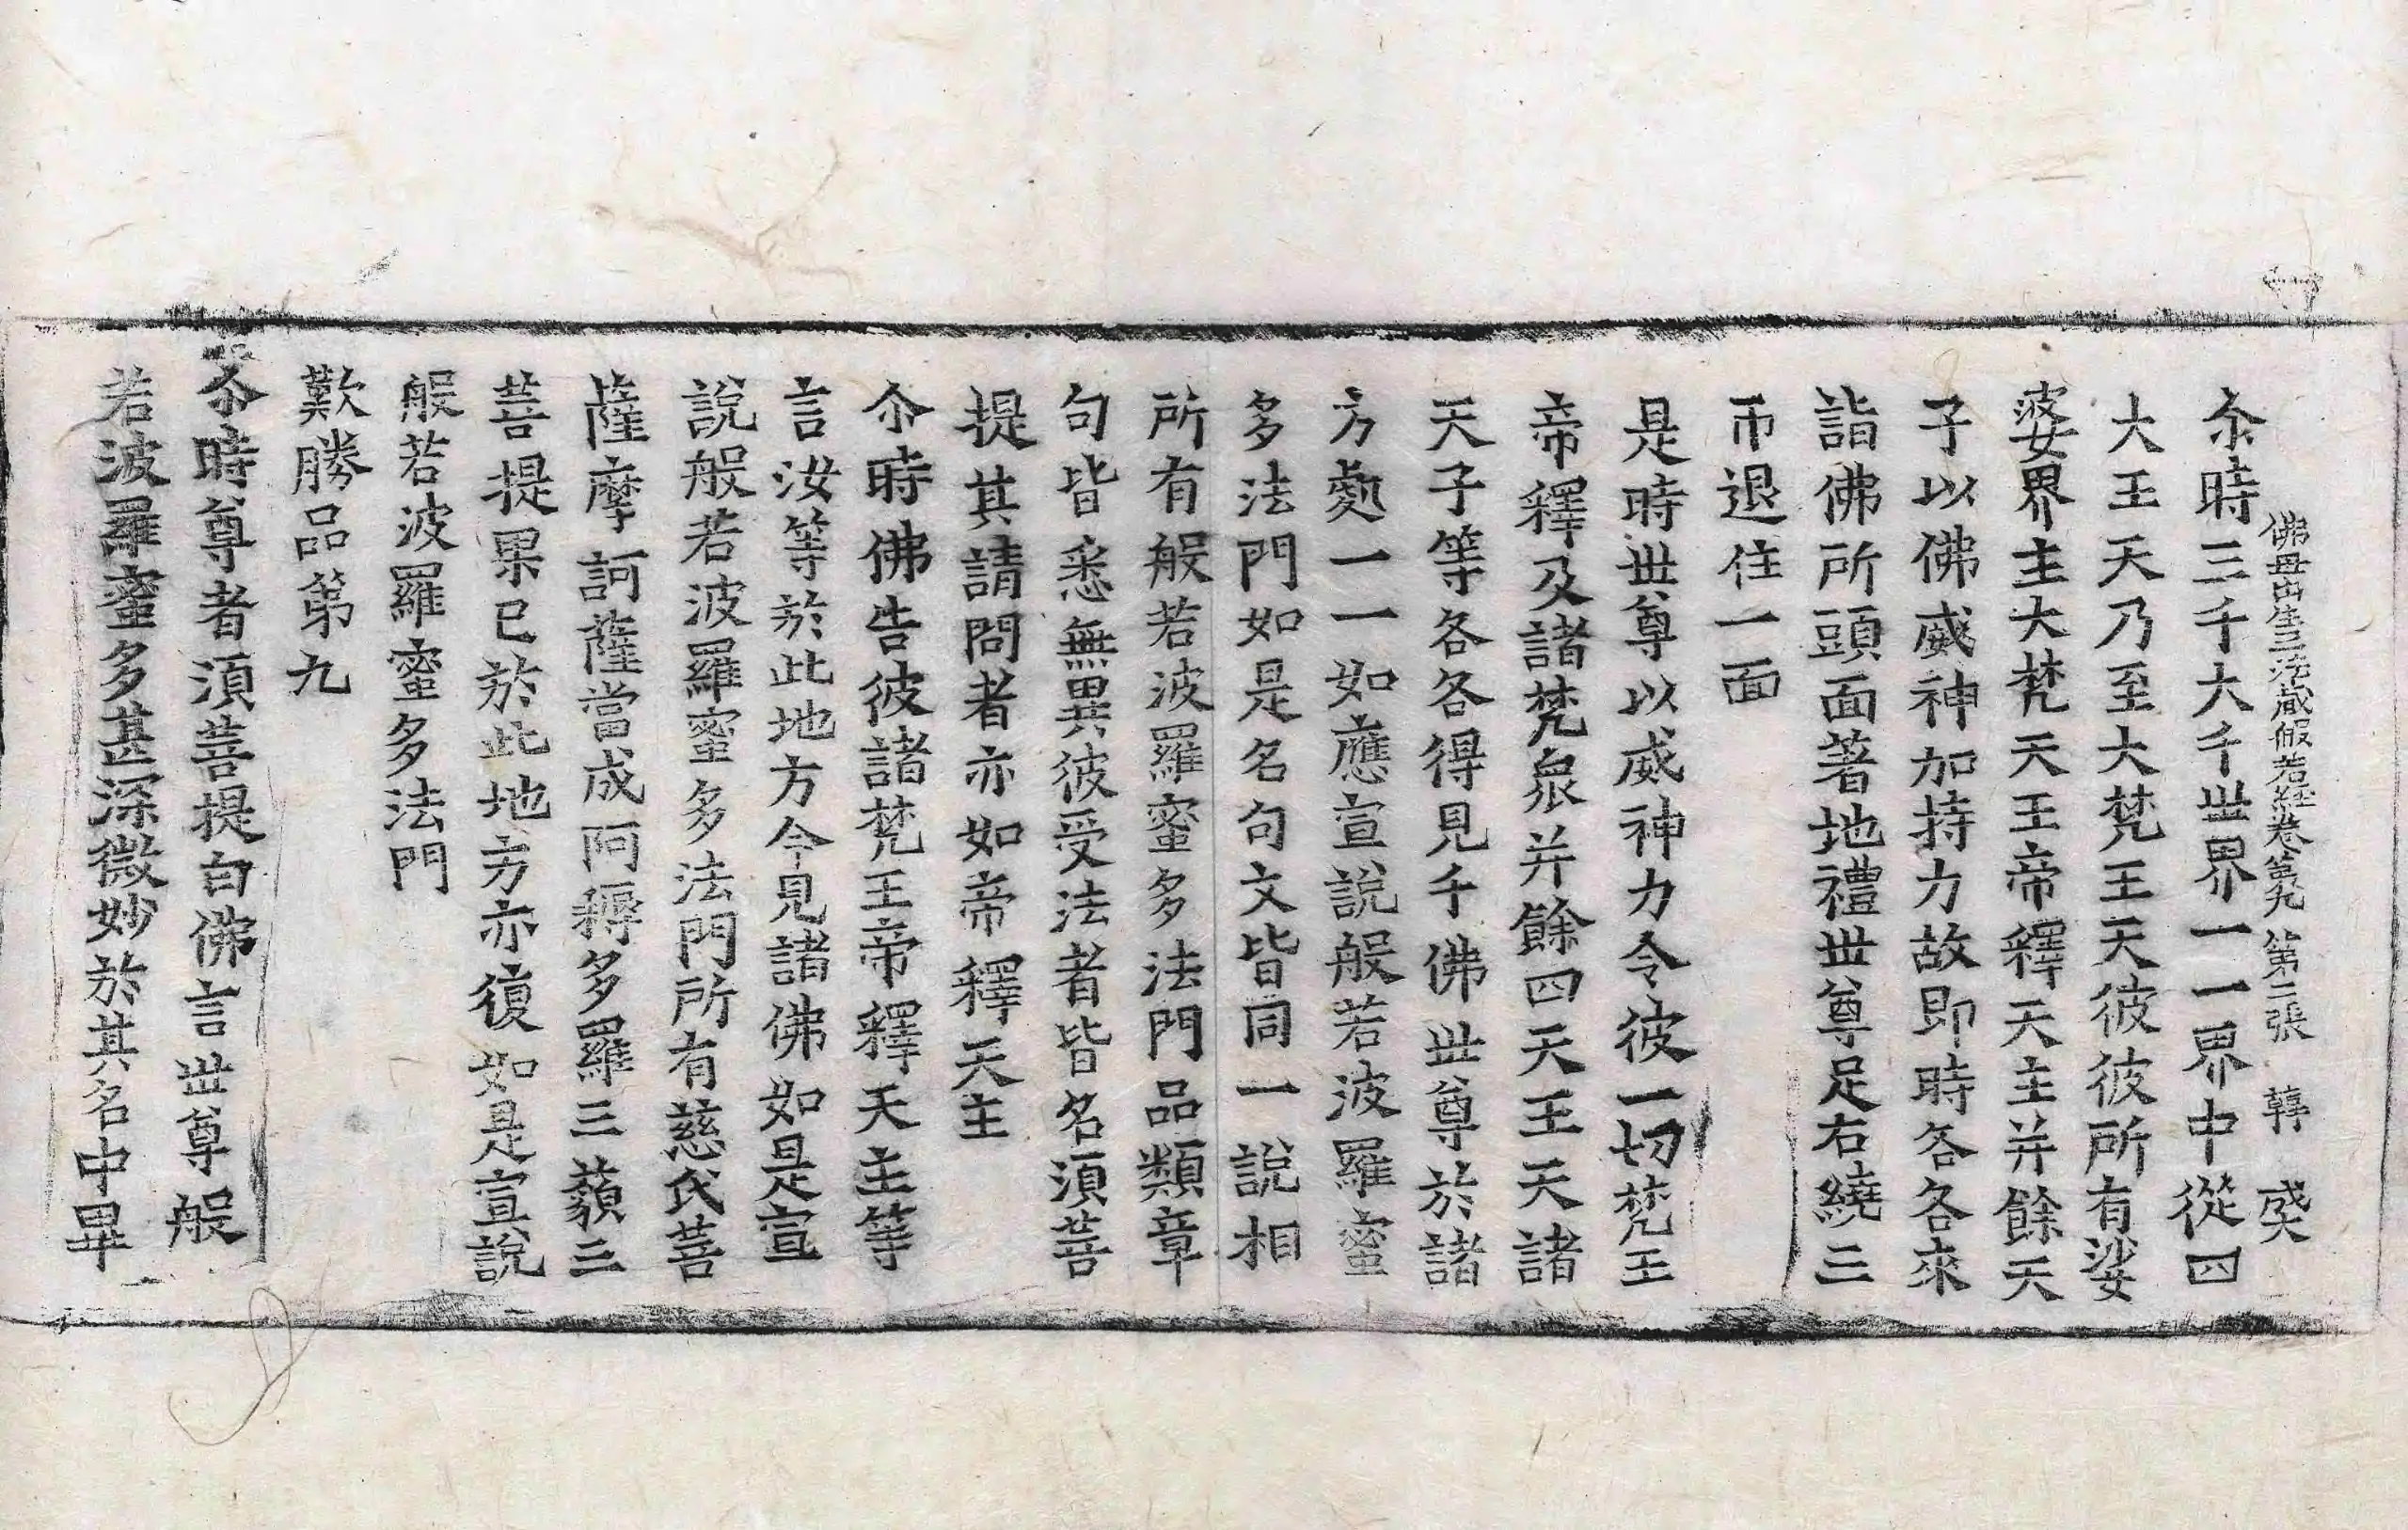 佛母出生三法藏般若經卷第九 第二張 韓 㷡
尒時三千大千世界一一界中從四
大王天乃至大梵王天彼彼所有娑
婆界主大梵天王帝釋天主并餘天
子以佛威神加持力故即時各各來
詣佛所頭面著地禮世尊足右繞三
帀退住一面
是時世尊以威神力令彼一切梵王
帝釋及諸梵衆并餘四天王天諸
天子等各各得見千佛世尊於諸
方處一一如應宣說般若波羅蜜
多法門如是名句文皆同一說相
所有般若波羅蜜多法門品類章
句皆悉無異彼受法者皆名須菩
提其請問者亦如帝釋天主
尒時佛告彼諸梵王帝釋天主等
言汝等於此地方今見諸佛如是宣
說般若波羅蜜多法門所有慈氏菩
薩摩訶薩當成阿耨多羅三藐三
菩提果已於此地方亦復如是宣說
般若波羅蜜多法門
歎勝品第九
尒時尊者須菩提白佛言世尊般
若波羅蜜多甚深微妙於其名中畢